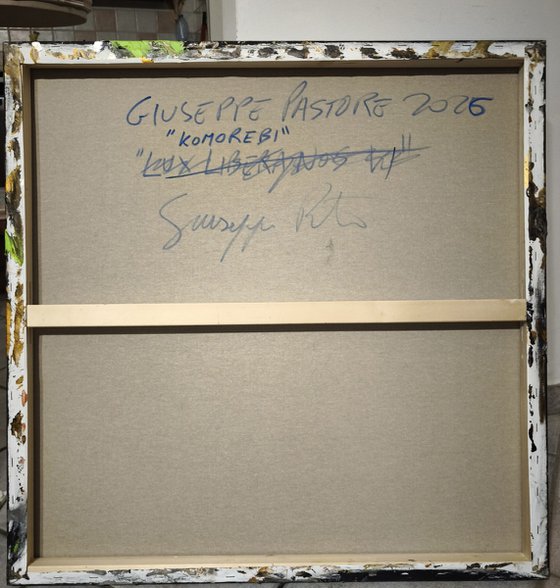 GIUSEPPE PASTORE 2026
"KOMOREBI"
"LUX LIBERA NOS VI"
Giuseppe Pastore